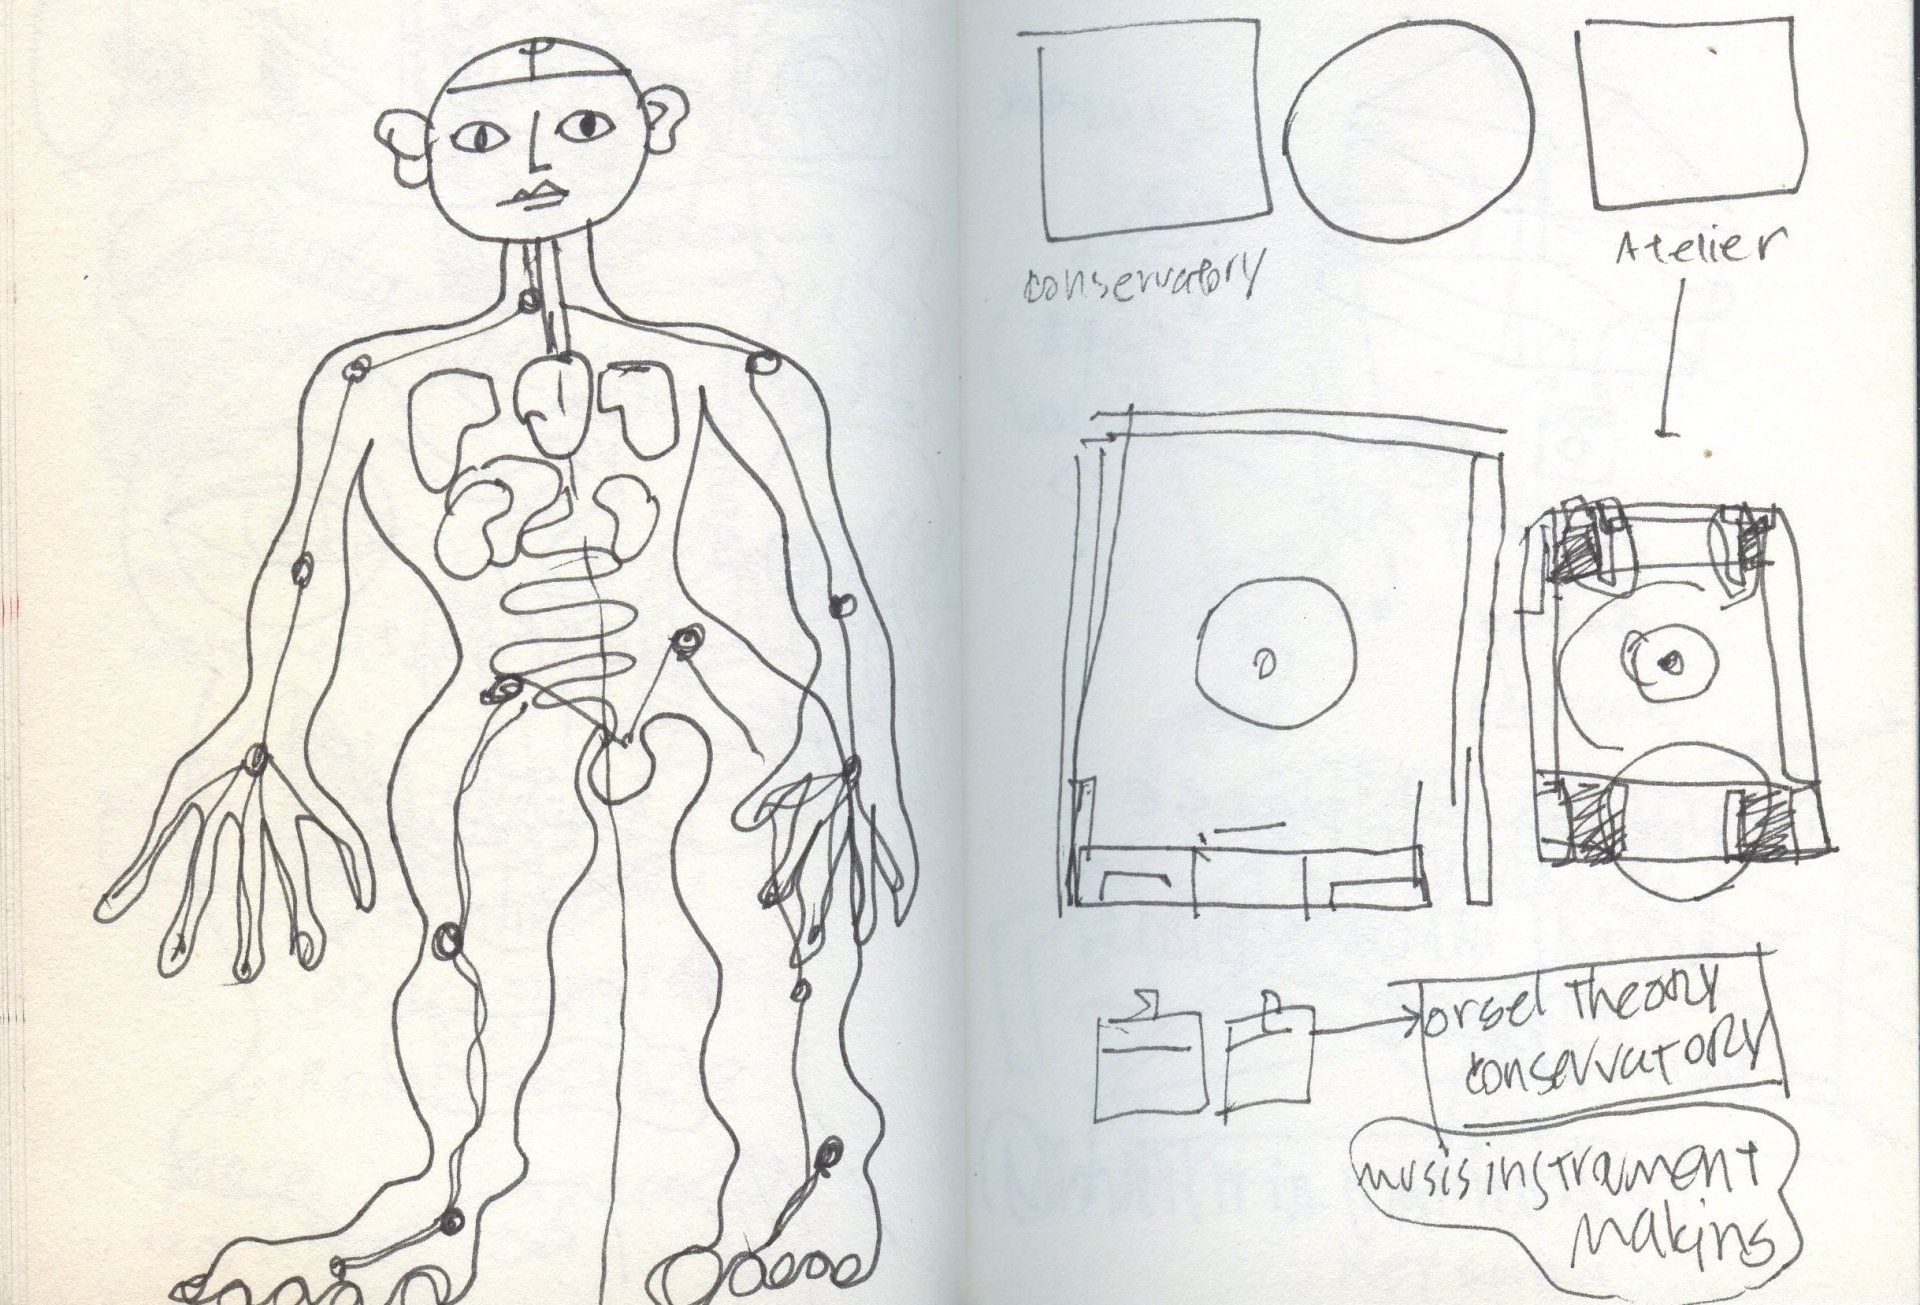 conservatory
Atelier
orgel Theory
conservatory
musis instrument
making